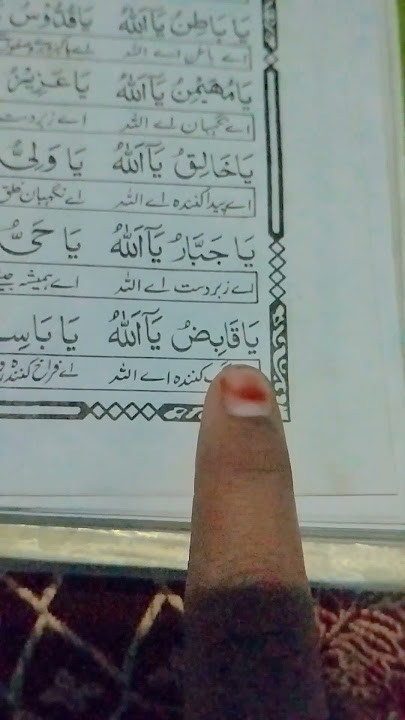 يَا بَاطِنُ يَآ اَللّٰهُ يَاقُدُّوْسُ
اے باطن اے اللہ
يَامُهَيْمِنُ يَآ اَللّٰهُ يَاعَزِيْزُ
اے نگہبان اے اللہ اے زبردست
يَاخَالِقُ يَآ اَللّٰهُ يَا وَلِىُّ
اے پیدا کنندہ اے اللہ اے نگہبان خلق
يَا جَبَّارُ يَآ اَللّٰهُ يَا حَىُّ
اے زبردست اے اللہ اے ہمیشہ
يَاقَابِضُ يَآ اَللّٰهُ يَا بَاسِ
کنندہ اے اللہ اے فراخ کنندہ